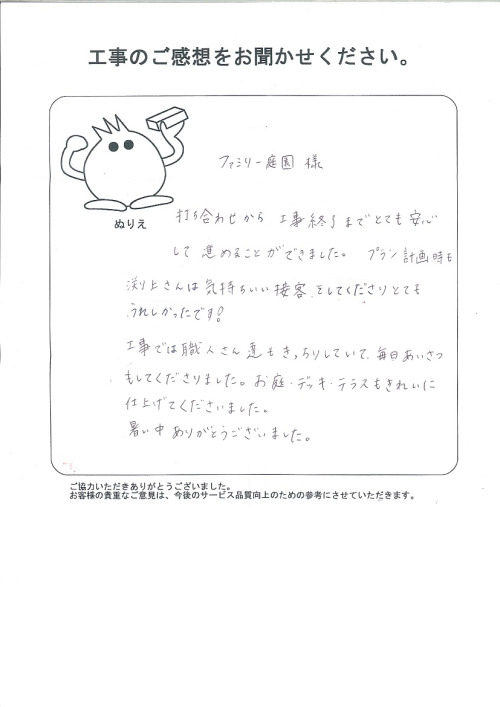 工事のご感想をお聞かせください。
ぬりえ
ファミリー庭園 様
打ち合わせから 工事終了までとても安心
して進めることができました。 プラン計画時も
渕上さんは気持ちいい接客をしてくださりとても
うれしかったです!
工事では職人さん達もきっちりしていて、毎日あいさつ
もしてくださりました。お庭・デッキ・テラスもきれいに
仕上げてくださいました。
暑い中ありがとうございました。
ご協力いただきありがとうございました。
お客様の貴重なご意見は、今後のサービス品質向上のための参考にさせていただきます。